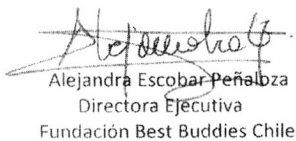 Alejandra Escobar Peñaloza
Directora Ejecutiva
Fundación Best Buddies Chile